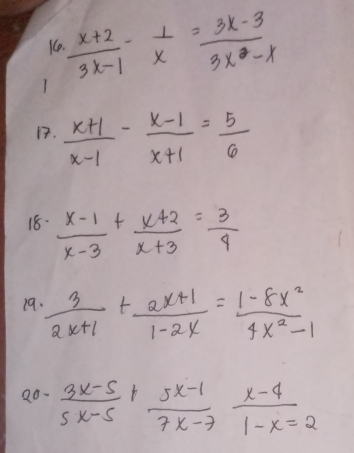 16. x+2/3x-1 - 1/x = 3x-3/3x²-x
1
17. x+1/x-1 - x-1/x+1 = 5/6
18. x-1/x-3 + x+2/x+3 = 3/4
19. 3/2x+1 + 2x+1/1-2x = 1-8x²/4x²-1
20- 3x-5/5x-5 + 5x-1/7x-7 x-4/1-x=2